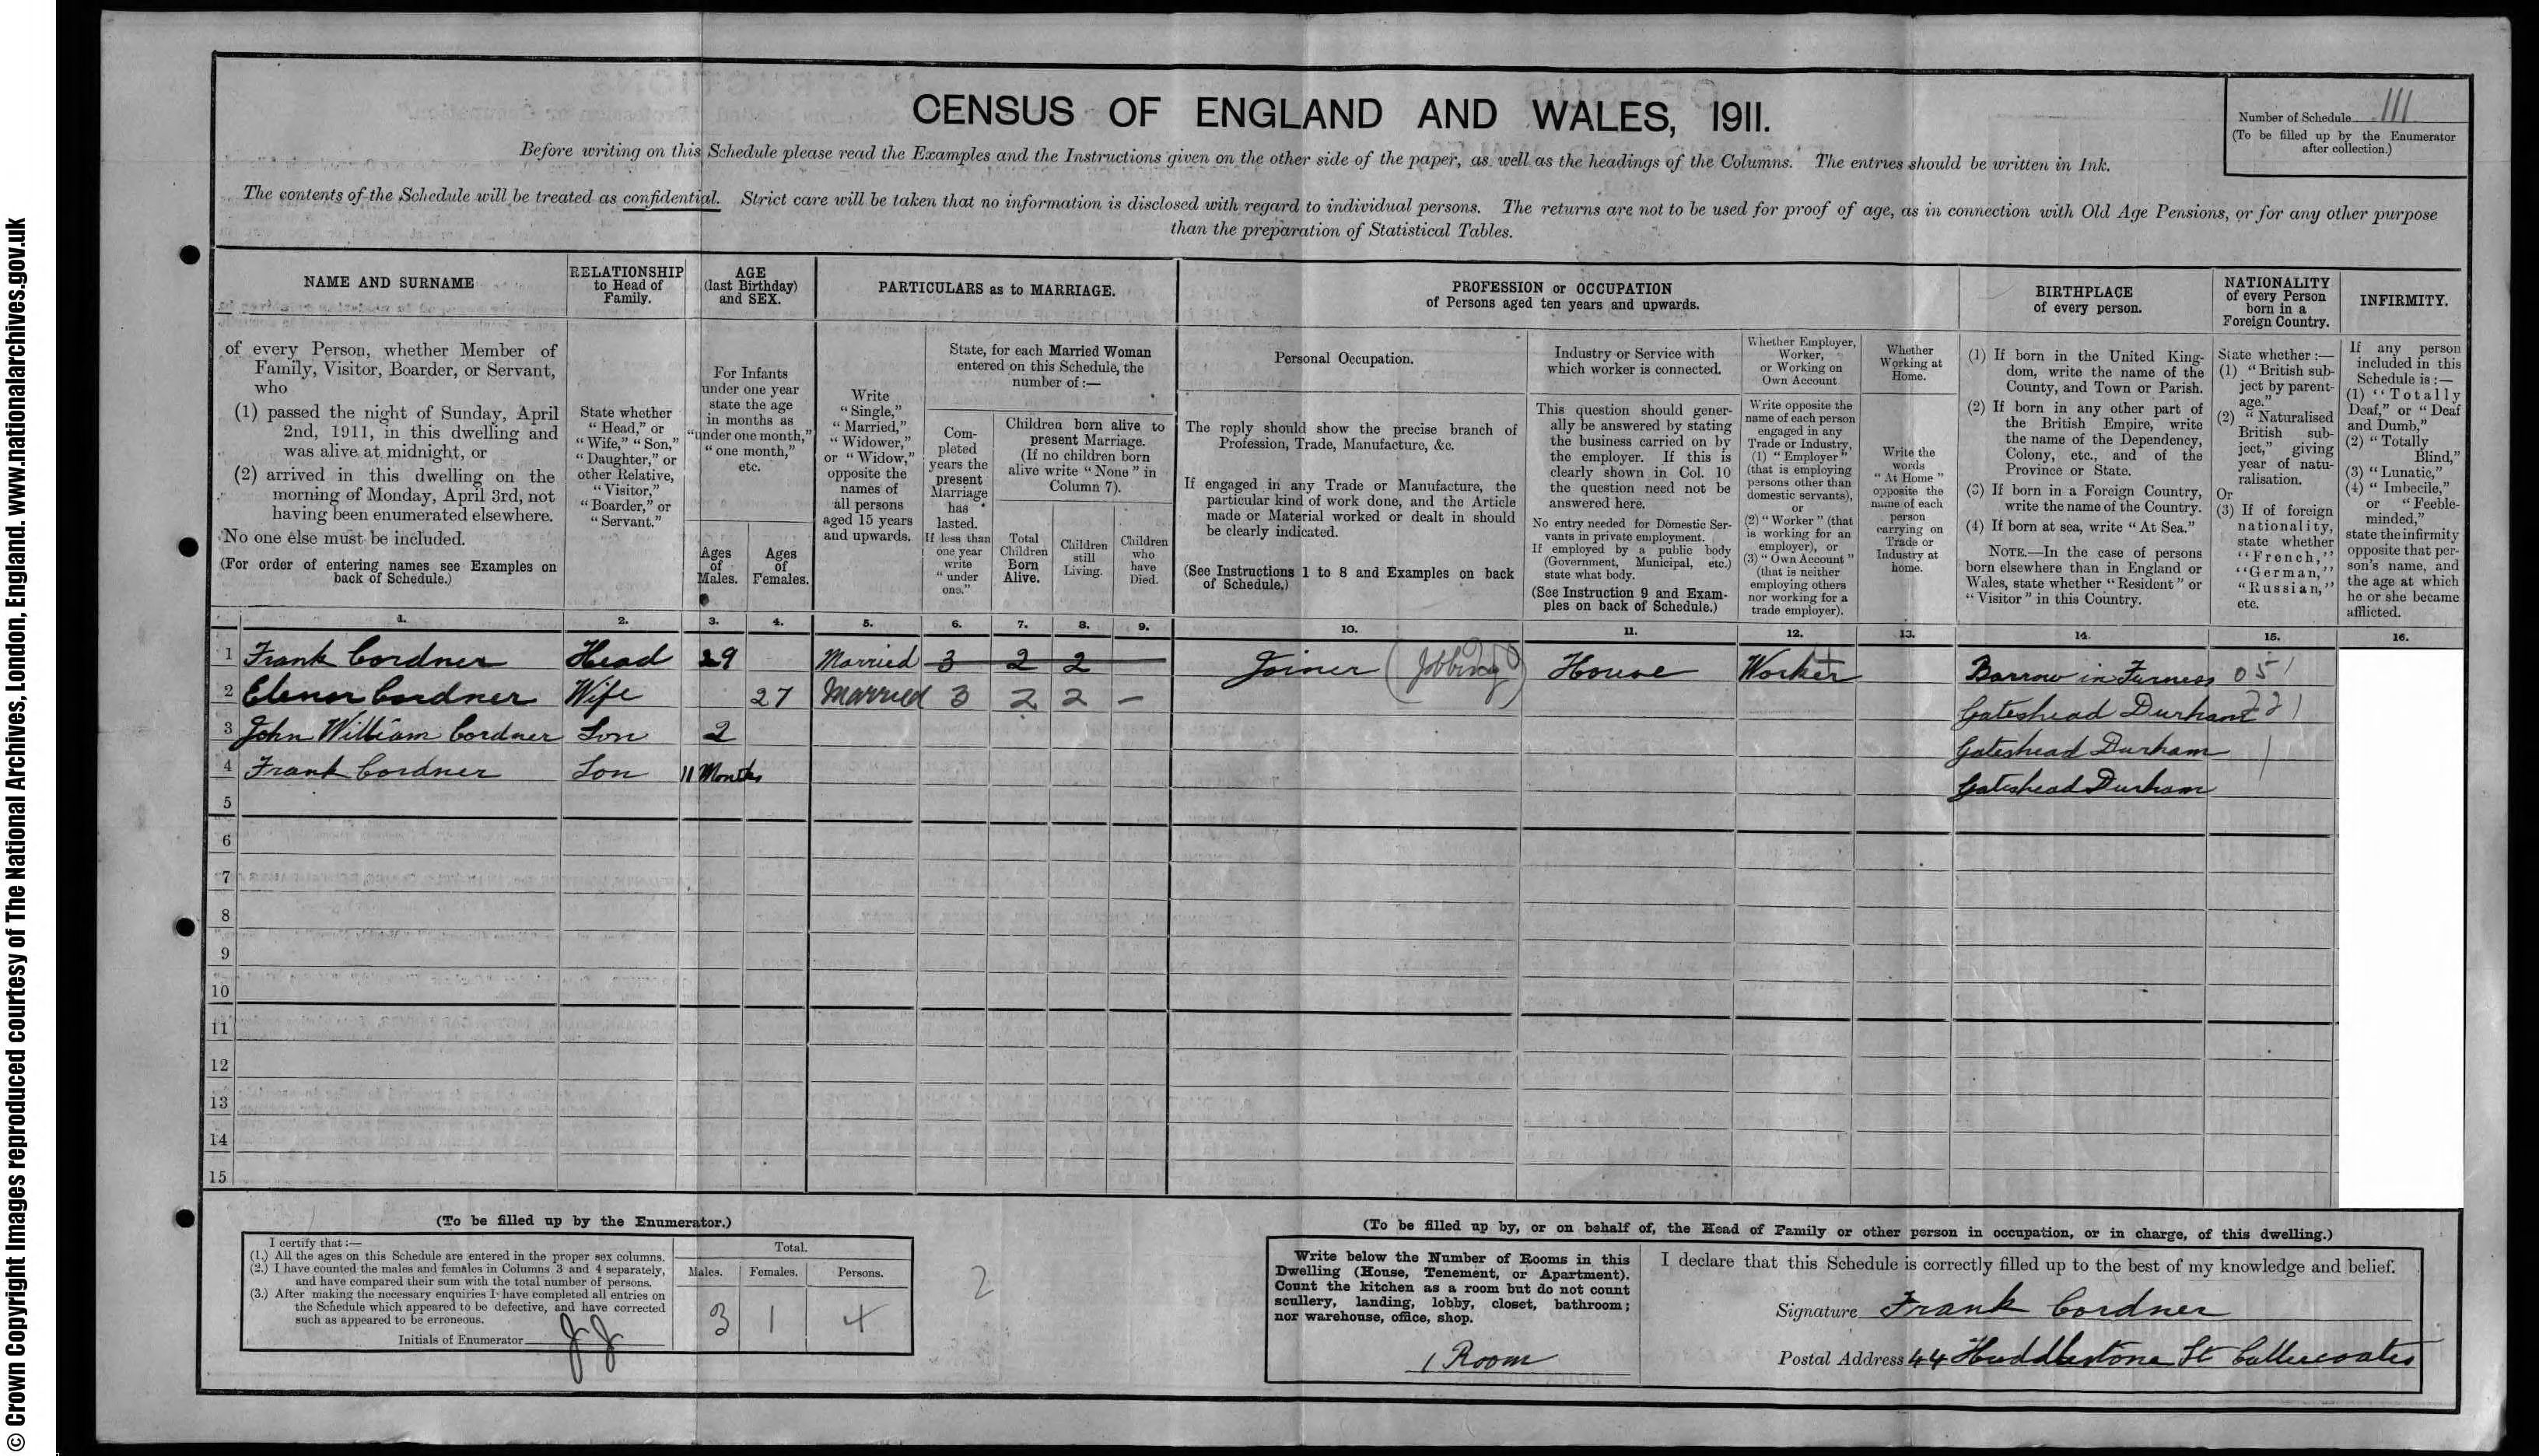 © Crown Copyright Images reproduced courtesy of The National Archives, London, England. www.nationalarchives.gov.uk
CENSUS OF ENGLAND AND WALES, 1911.
Number of Schedule 111
(To be filled up by the Enumerator
after collection.)
Before writing on this Schedule please read the Examples and the Instructions given on the other side of the paper, as well as the headings of the Columns. The entries should be written in Ink.
The contents of the Schedule will be treated as confidential. Strict care will be taken that no information is disclosed with regard to individual persons. The returns are not to be used for proof of age, as in connection with Old Age Pensions, or for any other purpose
than the preparation of Statistical Tables.
NAME AND SURNAME
of every Person, whether Member of
Family, Visitor, Boarder, or Servant,
who
(1) passed the night of Sunday, April
2nd, 1911, in this dwelling and
was alive at midnight, or
(2) arrived in this dwelling on the
morning of Monday, April 3rd, not
having been enumerated elsewhere.
No one else must be included.
(For order of entering names see Examples on
back of Schedule.)
RELATIONSHIP
to Head of
Family.
State whether
"Head," or
"Wife," "Son,"
"Daughter," or
other Relative,
"Visitor,"
"Boarder," or
"Servant."
AGE
(last Birthday)
and SEX.
For Infants
under one year
state the age
in months as
"under one month,"
"one month,"
etc.
Ages
of
Males.
Ages
of
Females.
PARTICULARS as to MARRIAGE.
Write
"Single,"
"Married,"
"Widower,"
or "Widow,"
opposite the
names of
all persons
aged 15 years
and upwards.
State, for each Married Woman
entered on this Schedule, the
number of :—
Com-
pleted
years the
present
Marriage
has
lasted.
If less than
one year
write
"under
one."
Children born alive to
present Marriage.
(If no children born
alive write "None" in
Column 7).
Total
Children
Born
Alive.
Children
still
Living.
Children
who
have
Died.
PROFESSION or OCCUPATION
of Persons aged ten years and upwards.
Personal Occupation.
The reply should show the precise branch of
Profession, Trade, Manufacture, &c.
If engaged in any Trade or Manufacture, the
particular kind of work done, and the Article
made or Material worked or dealt in should
be clearly indicated.
(See Instructions 1 to 8 and Examples on back
of Schedule.)
Industry or Service with
which worker is connected.
This question should gener-
ally be answered by stating
the business carried on by
the employer. If this is
clearly shown in Col. 10
the question need not be
answered here.
No entry needed for Domestic Ser-
vants in private employment.
If employed by a public body
(Government, Municipal, etc.)
state what body.
(See Instruction 9 and Exam-
ples on back of Schedule.)
Whether Employer,
Worker,
or Working on
Own Account
Write opposite the
name of each person
engaged in any
Trade or Industry,
(1) "Employer"
(that is employing
persons other than
domestic servants),
or
(2) "Worker" (that
is working for an
employer), or
(3) "Own Account"
(that is neither
employing others
nor working for a
trade employer).
Whether
Working at
Home.
Write the
words
"At Home"
opposite the
name of each
person
carrying on
Trade or
Industry at
home.
BIRTHPLACE
of every person.
(1) If born in the United King-
dom, write the name of the
County, and Town or Parish.
(2) If born in any other part of
the British Empire, write
the name of the Dependency,
Colony, etc., and of the
Province or State.
(3) If born in a Foreign Country,
write the name of the Country.
(4) If born at sea, write "At Sea."
NOTE.—In the case of persons
born elsewhere than in England or
Wales, state whether "Resident" or
"Visitor" in this Country.
NATIONALITY
of every Person
born in a
Foreign Country.
State whether :—
(1) "British sub-
ject by parent-
age."
(2) "Naturalised
British sub-
ject," giving
year of natu-
ralisation.
Or
(3) If of foreign
nationality,
state whether
"French,"
"German,"
"Russian,"
etc.
INFIRMITY.
If any person
included in this
Schedule is :—
(1) "Totally
Deaf," or "Deaf
and Dumb,"
(2) "Totally
Blind,"
(3) "Lunatic,"
(4) "Imbecile,"
or "Feeble-
minded,"
state the infirmity
opposite that per-
son's name, and
the age at which
he or she became
afflicted.
1. 2. 3. 4. 5. 6. 7. 8. 9. 10. 11. 12. 13. 14. 15. 16.
1 Frank Cordner Head 29 Married 3 2 2 — Joiner (Jobbing) House Worker Barrow in Furness 051
2 Elenor Cordner Wife 27 Married 3 2 2 — Gateshead Durham 221
3 John William Cordner Son 2 Gateshead Durham
4 Frank Cordner Son 11 Months Gateshead Durham
5
6
7
8
9
10
11
12
13
14
15
(To be filled up by the Enumerator.)
I certify that :—
(1.) All the ages on this Schedule are entered in the proper sex columns.
(2.) I have counted the males and females in Columns 3 and 4 separately,
and have compared their sum with the total number of persons.
(3.) After making the necessary enquiries I have completed all entries on
the Schedule which appeared to be defective, and have corrected
such as appeared to be erroneous.
Initials of Enumerator JJ
Total.
Males. Females. Persons.
3 1 4
2
(To be filled up by, or on behalf of, the Head of Family or other person in occupation, or in charge, of this dwelling.)
Write below the Number of Rooms in this
Dwelling (House, Tenement, or Apartment).
Count the kitchen as a room but do not count
scullery, landing, lobby, closet, bathroom;
nor warehouse, office, shop.
1 Room
I declare that this Schedule is correctly filled up to the best of my knowledge and belief.
Signature Frank Cordner
Postal Address 44 Huddlestone St Cullercoates